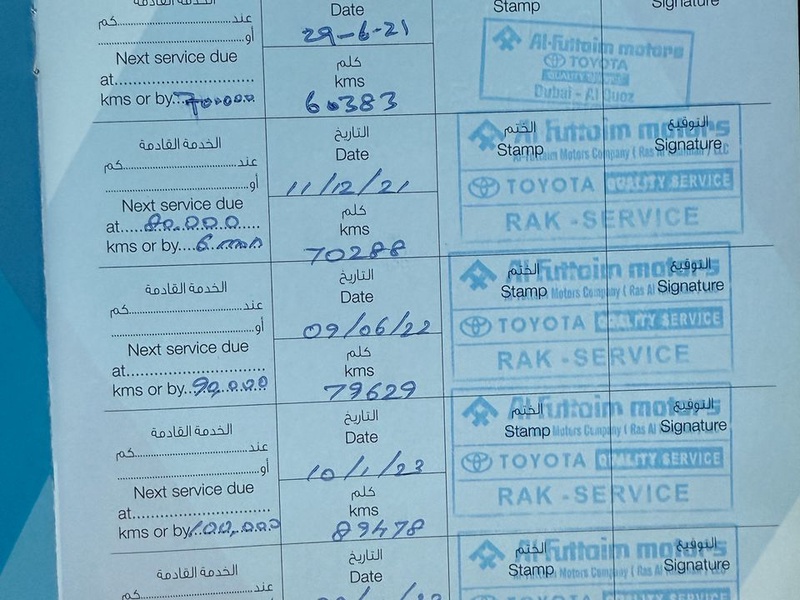 Date
Stamp
Signature
29-6-21
عند........................كم
أو........................
Next service due
at........................
kms or by...70.000
كلم
kms
60383
Al-Futtaim motors
TOYOTA
QUALITY SERVICE
Dubai - Al Quoz
الخدمة القادمة
عند........................كم
أو........................
Next service due
at...80.000
kms or by...6.
التاريخ
Date
11/12/21
كلم
kms
70288
الختم
Stamp
التوقيع
Signature
Al-Futtaim motors
Al-Futtaim Motors Company ( Ras Al LLC
TOYOTA QUALITY SERVICE
RAK - SERVICE
الخدمة القادمة
عند........................كم
أو........................
Next service due
at........................
kms or by...90,000
التاريخ
Date
09/06/22
كلم
kms
79629
الختم
Stamp
التوقيع
Signature
Al-Futtaim motors
Motors Company ( Ras Al
TOYOTA QUALITY SERVICE
RAK - SERVICE
الخدمة القادمة
عند........................كم
أو........................
Next service due
at........................
kms or by...100,000
التاريخ
Date
10/1/23
كلم
kms
89478
الختم
Stamp
التوقيع
Signature
Al-Futtaim motors
Motors Company ( Ras
TOYOTA QUALITY SERVICE
RAK - SERVICE
الخدمة القادمة
عند........................كم
التاريخ
Date
الختم
Stamp
التوقيع
Signature
Al-Futtaim motors
Motors Company ( Ras Al